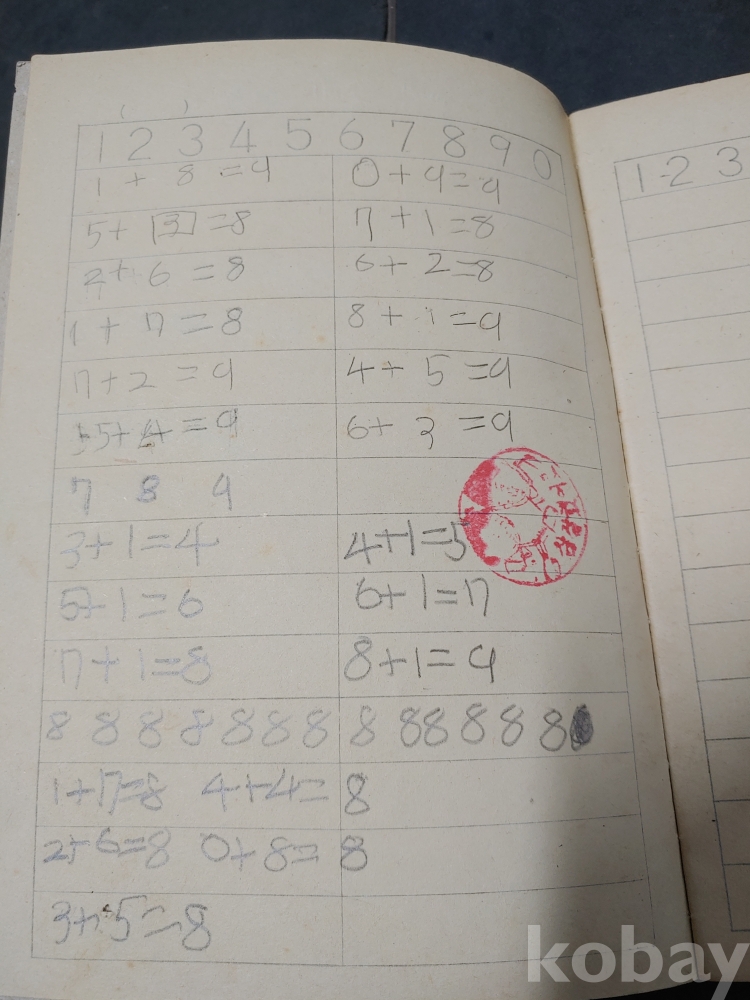 ( )
1 2 3 4 5 6 7 8 9 0
1 + 8 = 9 0 + 9 = 9
5 + 3 = 8 7 + 1 = 8
2 + 6 = 8 6 + 2 = 8
1 + 7 = 8 8 + 1 = 9
7 + 2 = 9 4 + 5 = 9
5 + 4 = 9 6 + 3 = 9
7 8 9
3 + 1 = 4 4 + 1 = 5
5 + 1 = 6 6 + 1 = 7
7 + 1 = 8 8 + 1 = 9
8 8 8 8 8 8 8 8 8 8 8 8 8 8
1 + 7 = 8 4 + 4 = 8
2 + 6 = 8 0 + 8 = 8
3 + 5 = 8
1 2 3
kobay